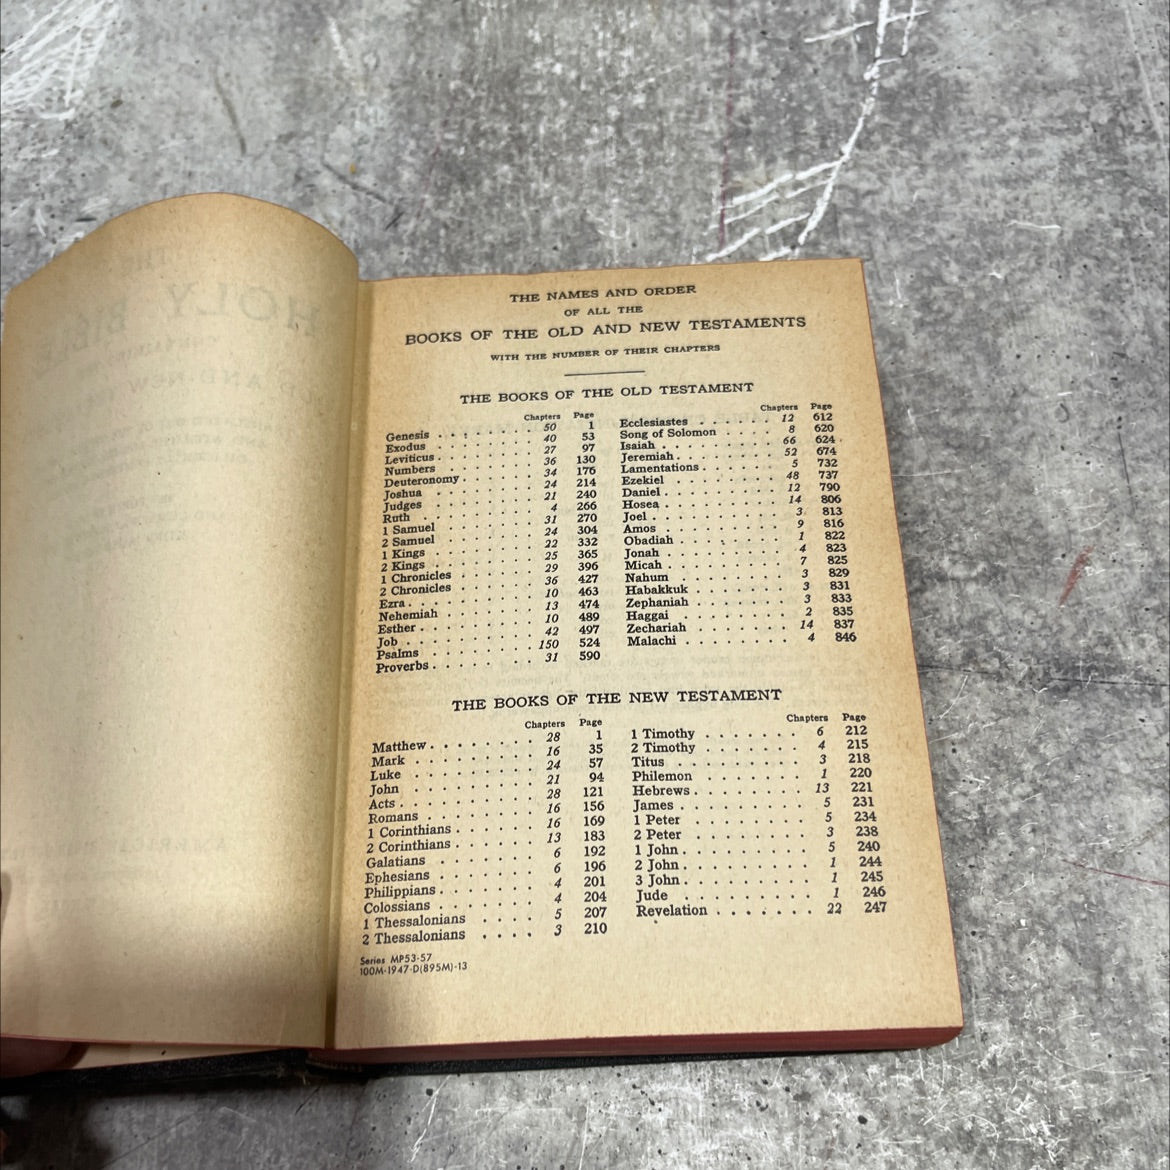 THE NAMES AND ORDER
OF ALL THE
BOOKS OF THE OLD AND NEW TESTAMENTS
WITH THE NUMBER OF THEIR CHAPTERS
THE BOOKS OF THE OLD TESTAMENT
Chapters Page
Genesis 50 1
Exodus 40 53
Leviticus 27 97
Numbers 36 130
Deuteronomy 34 176
Joshua 24 214
Judges 21 240
Ruth 4 266
1 Samuel 31 270
2 Samuel 24 304
1 Kings 22 332
2 Kings 25 365
1 Chronicles 29 396
2 Chronicles 36 427
Ezra 10 463
Nehemiah 13 474
Esther 10 489
Job 42 497
Psalms 150 524
Proverbs 31 590
Chapters Page
Ecclesiastes 12 612
Song of Solomon 8 620
Isaiah 66 624
Jeremiah 52 674
Lamentations 5 732
Ezekiel 48 737
Daniel 12 790
Hosea 14 806
Joel 3 813
Amos 9 816
Obadiah 1 822
Jonah 4 823
Micah 7 825
Nahum 3 829
Habakkuk 3 831
Zephaniah 3 833
Haggai 2 835
Zechariah 14 837
Malachi 4 846
THE BOOKS OF THE NEW TESTAMENT
Chapters Page
Matthew 28 1
Mark 16 35
Luke 24 57
John 21 94
Acts 28 121
Romans 16 156
1 Corinthians 16 169
2 Corinthians 13 183
Galatians 6 192
Ephesians 6 196
Philippians 4 201
Colossians 4 204
1 Thessalonians 5 207
2 Thessalonians 3 210
Chapters Page
1 Timothy 6 212
2 Timothy 4 215
Titus 3 218
Philemon 1 220
Hebrews 13 221
James 5 231
1 Peter 5 234
2 Peter 3 238
1 John 5 240
2 John 1 244
3 John 1 245
Jude 1 246
Revelation 22 247
Series MP53-57
100M-1947-D(895M)-13